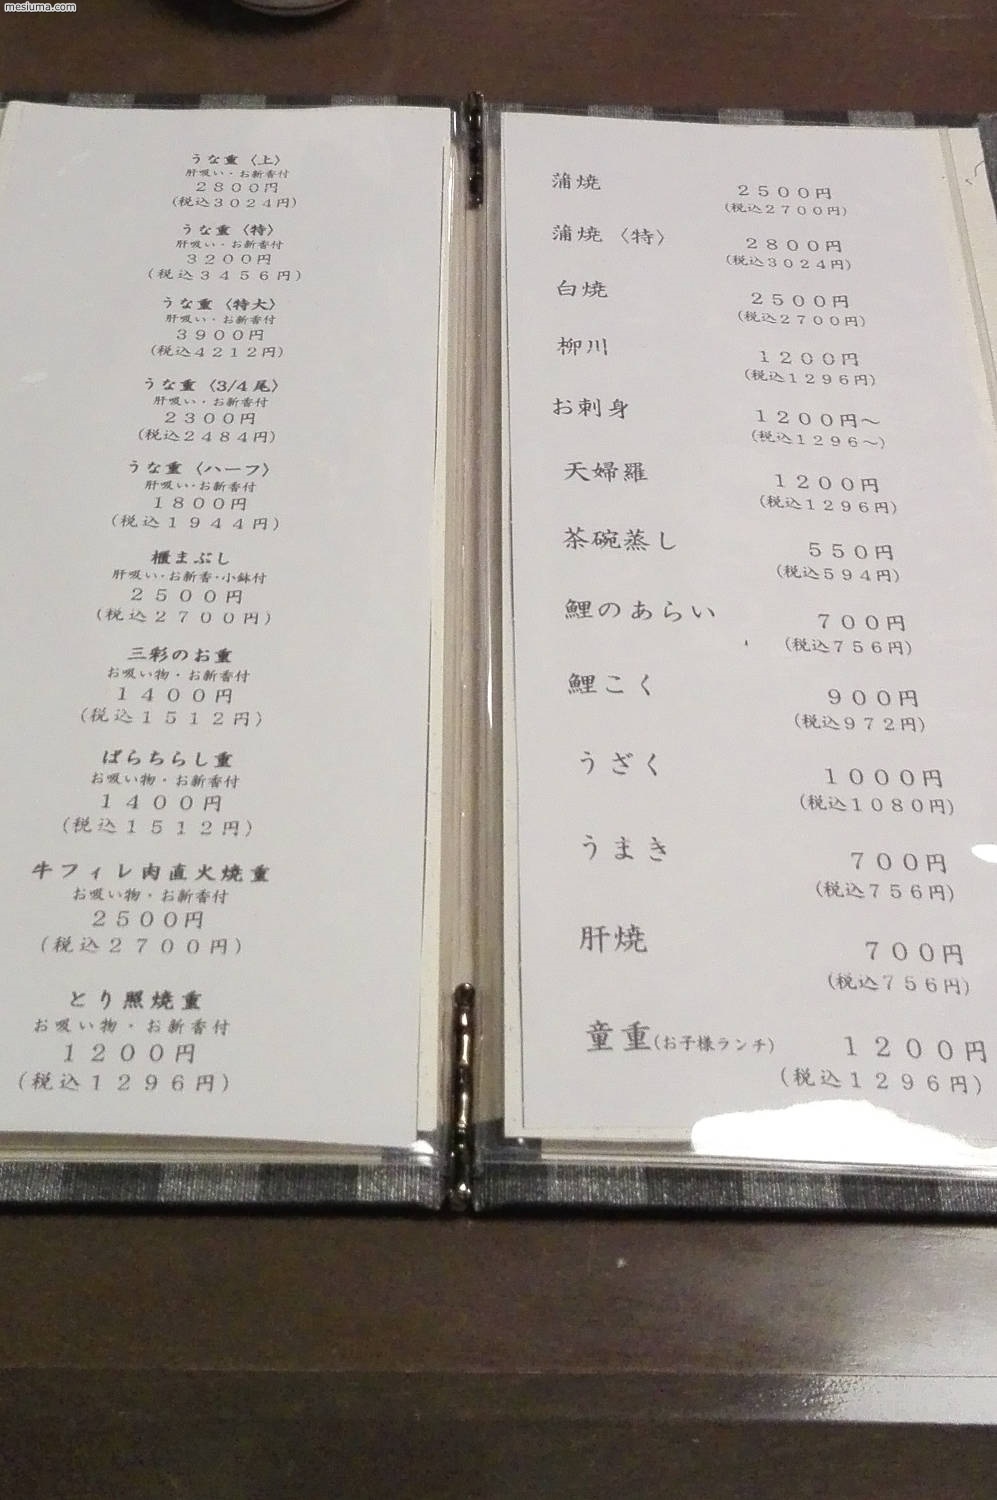 mesiuma.com
うな重〈上〉
肝吸い・お新香付
２８００円
(税込３０２４円)
うな重〈特〉
肝吸い・お新香付
３２００円
(税込３４５６円)
うな重〈特大〉
肝吸い・お新香付
３９００円
(税込４２１２円)
うな重〈3/4尾〉
肝吸い・お新香付
２３００円
(税込２４８４円)
うな重〈ハーフ〉
肝吸い・お新香付
１８００円
(税込１９４４円)
櫃まぶし
肝吸い・お新香・小鉢付
２５００円
(税込２７００円)
三彩のお重
お吸い物・お新香付
１４００円
(税込１５１２円)
ばらちらし重
お吸い物・お新香付
１４００円
(税込１５１２円)
牛フィレ肉直火焼重
お吸い物・お新香付
２５００円
(税込２７００円)
とり照焼重
お吸い物・お新香付
１２００円
(税込１２９６円)
蒲焼 ２５００円
(税込２７００円)
蒲焼〈特〉 ２８００円
(税込３０２４円)
白焼 ２５００円
(税込２７００円)
柳川 １２００円
(税込１２９６円)
お刺身 １２００円～
(税込１２９６～)
天婦羅 １２００円
(税込１２９６円)
茶碗蒸し ５５０円
(税込５９４円)
鯉のあらい ７００円
(税込７５６円)
鯉こく ９００円
(税込９７２円)
うざく １０００円
(税込１０８０円)
うまき ７００円
(税込７５６円)
肝焼 ７００円
(税込７５６円)
童重(お子様ランチ) １２００円
(税込１２９６円)